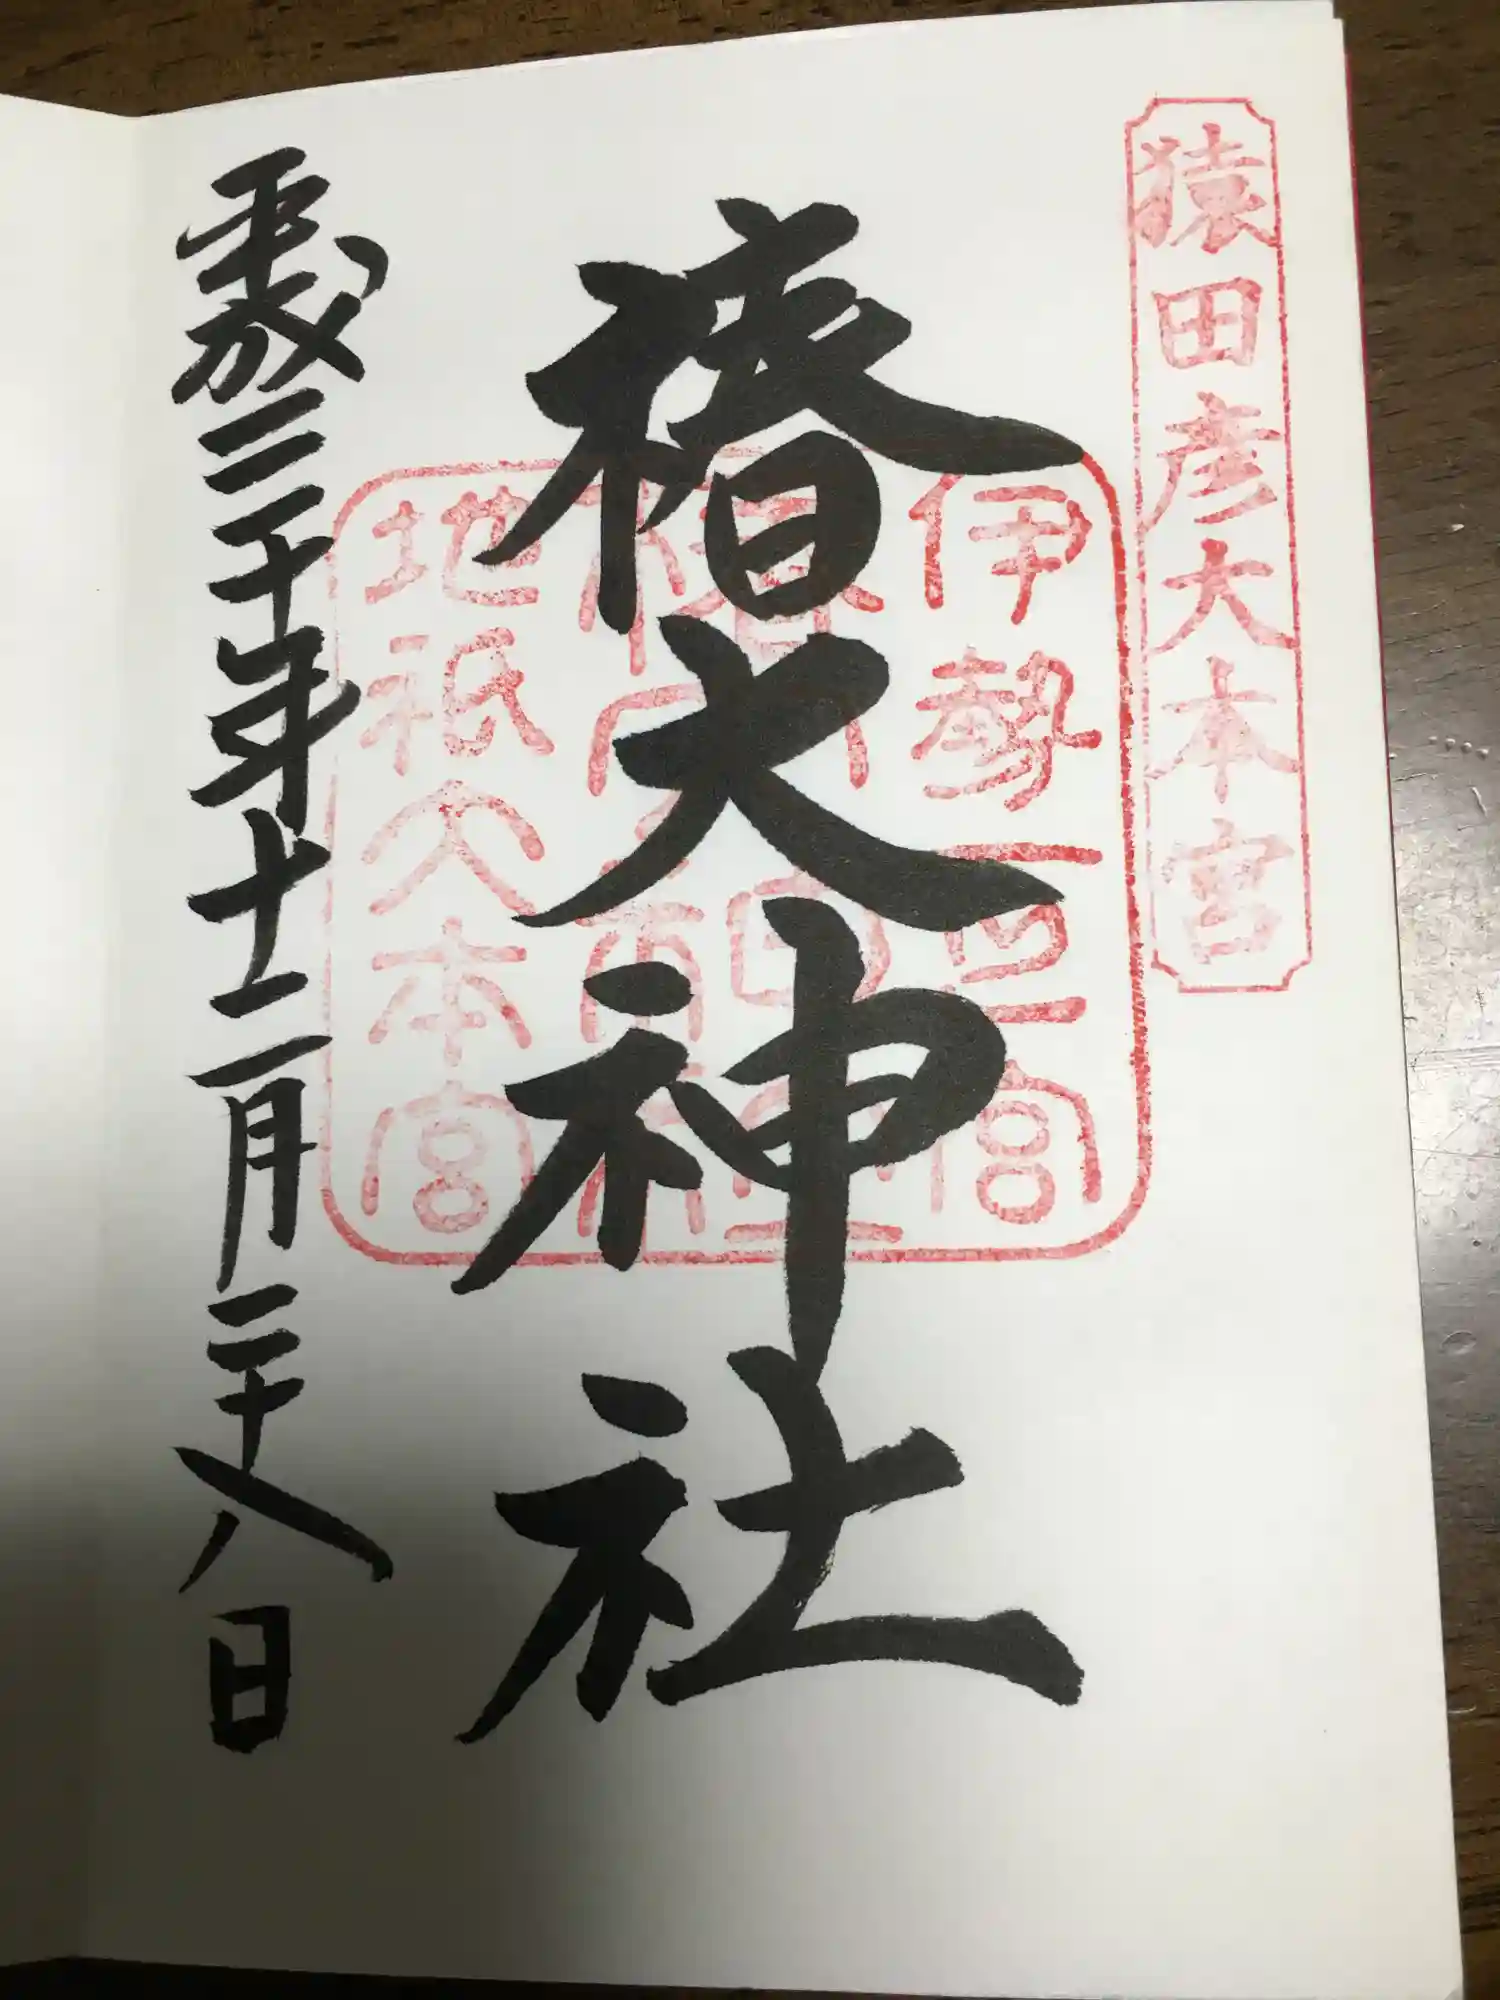 猿田彦大本宮
椿大神社
伊勢一之宮
地祇大本宮
平成三十年十二月二十八日